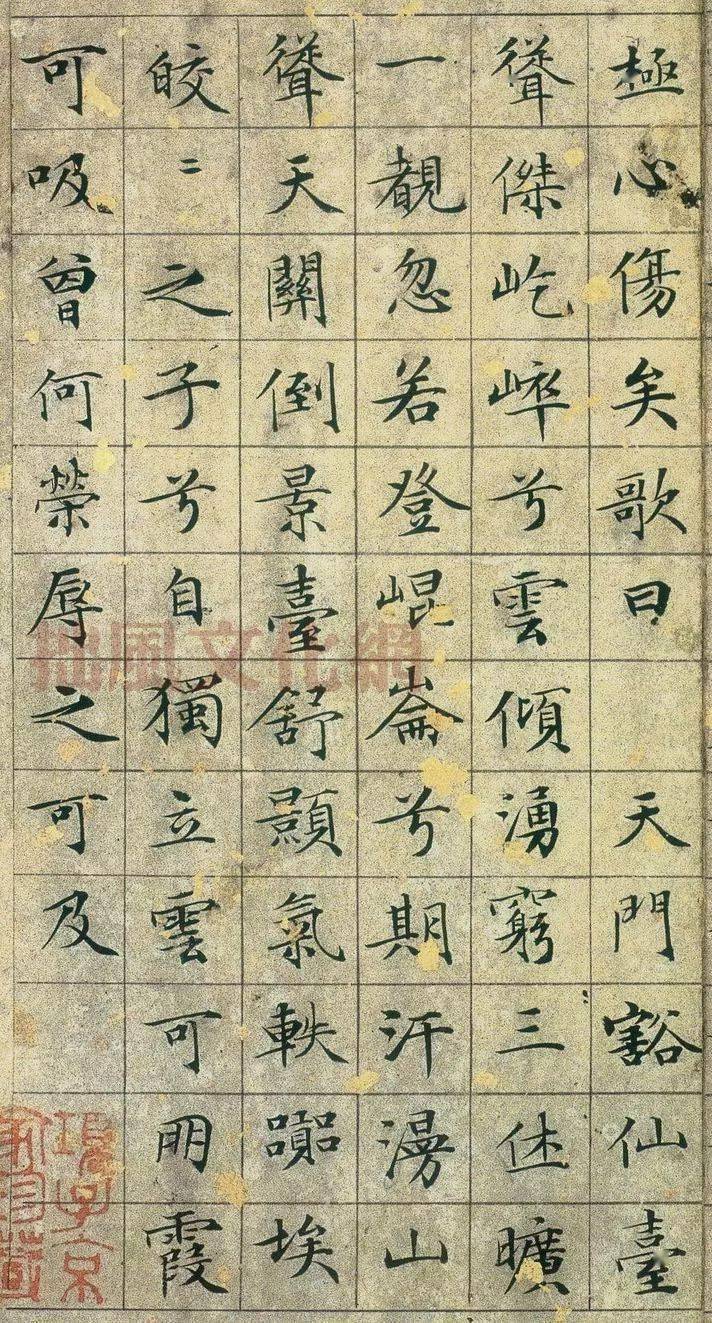 極心傷矣歌曰　天門豁仙臺
聳傑屹崒兮雲傾湧窮三休曠
一覩忽若登崐崙兮期汗漫山
聳天關倒景臺舒顥氣軼囂埃
皎〻之子兮自獨立雲可朋霞
可吸曾何榮辱之可及
項子京家珍藏
拙風文化網